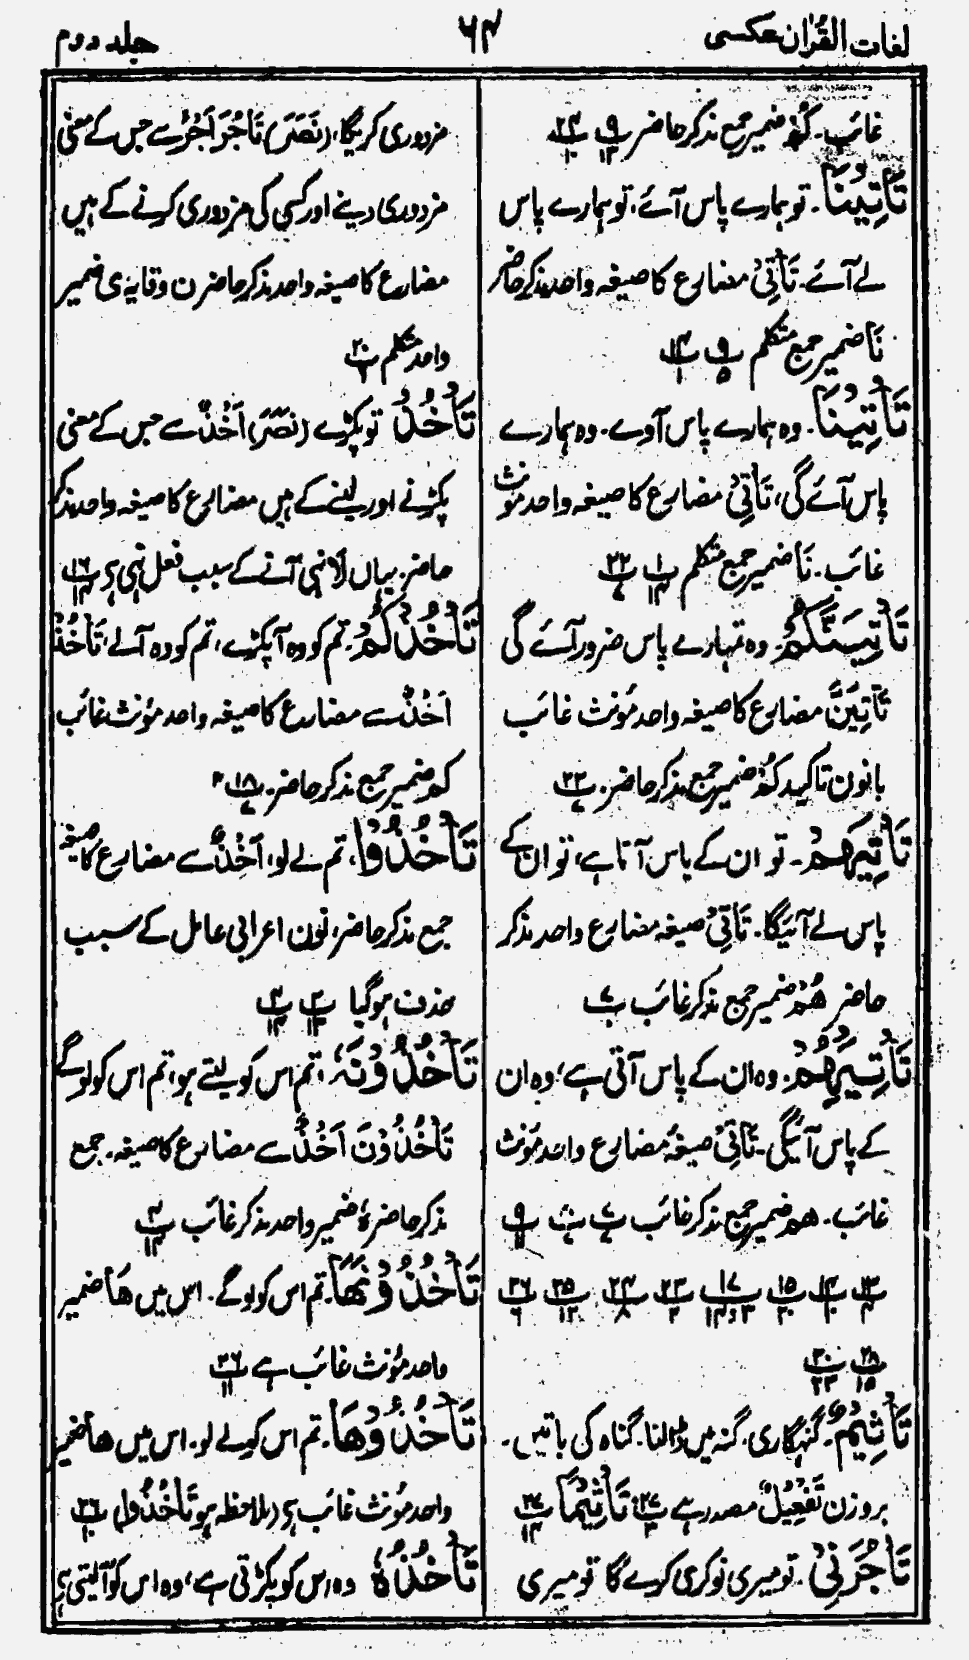 لغات القرآن عکسی
۶۴
جلد دوم
غائب۔ كُمْ ضمیر جمع مذکر حاضر پ۹ ۱۳ پ۲۴ ۱۰
تَأْتِيْنَا۔ تو ہمارے پاس آئے، تو ہمارے پاس
لے آئے۔ تَأْتِیْ مضارع کا صیغہ واحد مذکر حاضر
نَا ضمیر جمع متکلم پ۹ ۵ پ۱۴ ۱
تَأْتِيْنَا۔ وہ ہمارے پاس آوے۔ وہ ہمارے
پاس آئے گی، تَأْتِیْ مضارع کا صیغہ واحد مؤنث
غائب۔ نَا ضمیر جمع متکلم پ۱ ۱۴ پ۲۲ ۷
تَأْتِيَنَّكُمْ۔ وہ تمہارے پاس ضرور آئے گی
تَأْتِيَنَّ مضارع کا صیغہ واحد مؤنث غائب
بانون تاکید كُمْ ضمیر جمع مذکر حاضر۔ پ۲۲ ۷
تَأْتِيْهِمْ۔ تو ان کے پاس آتا ہے، تو ان کے
پاس لے آئیگا۔ تَأْتِیْ صیغہ مضارع واحد مذکر
حاضر هُمْ ضمیر جمع مذکر غائب پ۷
تَأْتِيْهِمْ۔ وہ ان کے پاس آتی ہے، وہ ان
کے پاس آئیگی۔ تَأْتِیْ صیغہ مضارع واحد مؤنث
غائب۔ هم ضمیر جمع مذکر غائب پ۷ ۷ پ۸ ۷ پ۹ ۱۱
پ۱۳ ۴ پ۱۴ ۱ پ۱۵ ۲۰ پ۱۷ ۱۴،۳ پ۲۳ ۲ پ۲۴ ۸ پ۲۵ ۱۲ پ۲۶ ۶
پ۲۸ ۱۵ پ۳۰ ۲۳
تَأْثِيْمٌ۔ گنہگاری۔ گنہ میں ڈالنا۔ گناہ کی باتیں۔
بروزن تَفْعِيْلٌ مصدر ہے پ۲۷ ۳؛ تَأْثِيْمًا پ۲۷ ۱۴
تَأْجُرَنِیْ۔ تو میری نوکری کرے گا تو میری
مزدوری کریگا، (نَصَرَ) تَأْجُرَ اَجْرٌ سے جس کے معنی
مزدوری دینے اور کسی کی مزدوری کرنے کے ہیں
مضارع کا صیغہ واحد مذکر حاضر ن وقایہ ی ضمیر
واحد متکلم پ۲۰ ۶
تَأْخُذْ تو پکڑے (نَصَرَ) اَخْذٌ سے جس کے معنی
پکڑنے اور لینے کے ہیں مضارع کا صیغہ واحد مذکر
حاضر۔ یہاں لا نہی آنے کے سبب فعل نہی ہے پ۱۶ ۱۴
تَأْخُذْكُمْ۔ تم کو وہ آپکڑے، تم کو وہ آلے، تَأْخُذْ
اَخْذٌ سے مضارع کا صیغہ واحد مؤنث غائب
كم ضمیر جمع مذکر حاضر۔ پ۱۸ ۷
تَأْخُذُوْا، تم لے لو، اَخْذٌ سے مضارع کا صیغہ
جمع مذکر حاضر، نون اعرابی عامل کے سبب
حذف ہوگیا پ۲ ۱۳ پ۴ ۱۴
تَأْخُذُوْنَهٗ، تم اس کو لیتے ہو، تم اس کو لوگے
تَأْخُذُوْنَ اَخْذٌ سے مضارع کا صیغہ۔ جمع
مذکر حاضر هٗ ضمیر واحد مذکر غائب پ۴ ۱۴
تَأْخُذُوْنَهَا۔ تم اس کو لوگے۔ اس میں هَا ضمیر
واحد مؤنث غائب ہے پ۲۶ ۱۱
تَأْخُذُوْهَا۔ تم اس کو لے لو۔ اس میں ها ضمیر
واحد مؤنث غائب ہے (ملاحظہ ہو تَأْخُذُوْا) پ۲۶ ۱۰
تَأْخُذُهٗ وہ اس کو پکڑتی ہے، وہ اس کو آلیتی ہے